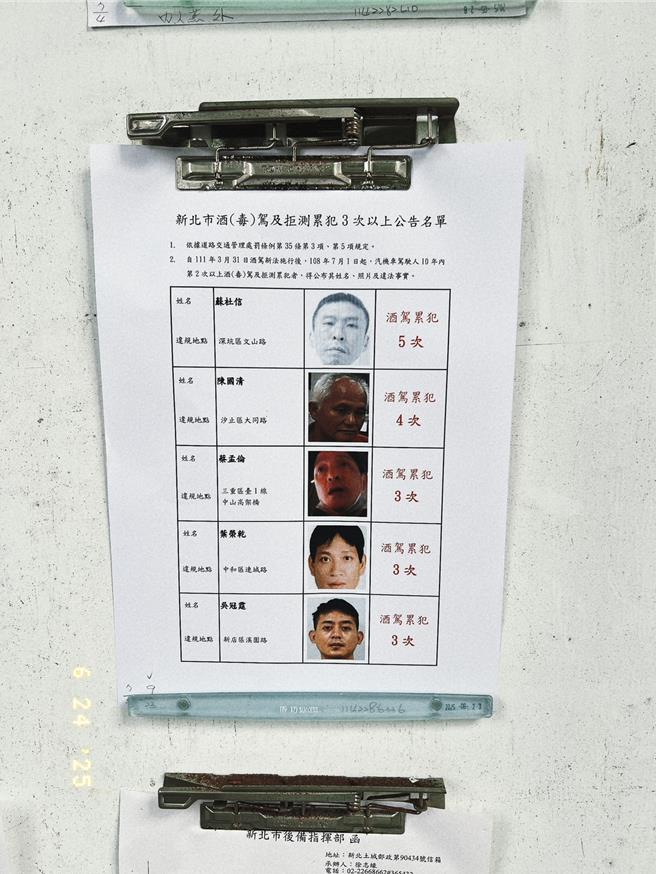 新北市酒(毒)駕及拒測累犯3次以上公告名單
1. 依據道路交通管理處罰條例第35條第3項、第5項規定。
2. 自111年3月31日酒駕新法施行後,108年7月1日起,汽機車駕駛人10年內
第2次以上酒(毒)駕及拒測累犯者,得公布其姓名、照片及違法事實。
姓名 蘇杜信
酒駕累犯
違規地點 深坑區文山路
5次
姓名 陳國清
酒駕累犯
違規地點 汐止區大同路
4次
姓名 蔡孟倫
酒駕累犯
違規地點 三重區臺1線
中山高架橋
3次
姓名 葉榮乾
酒駕累犯
違規地點 中和區連城路
3次
姓名 吳冠霆
酒駕累犯
違規地點 新店區溪園路
3次
6 24 '25
新北市後備指揮部 函
地址:新北土城郵政第90434號信箱
承辦人:徐志雄